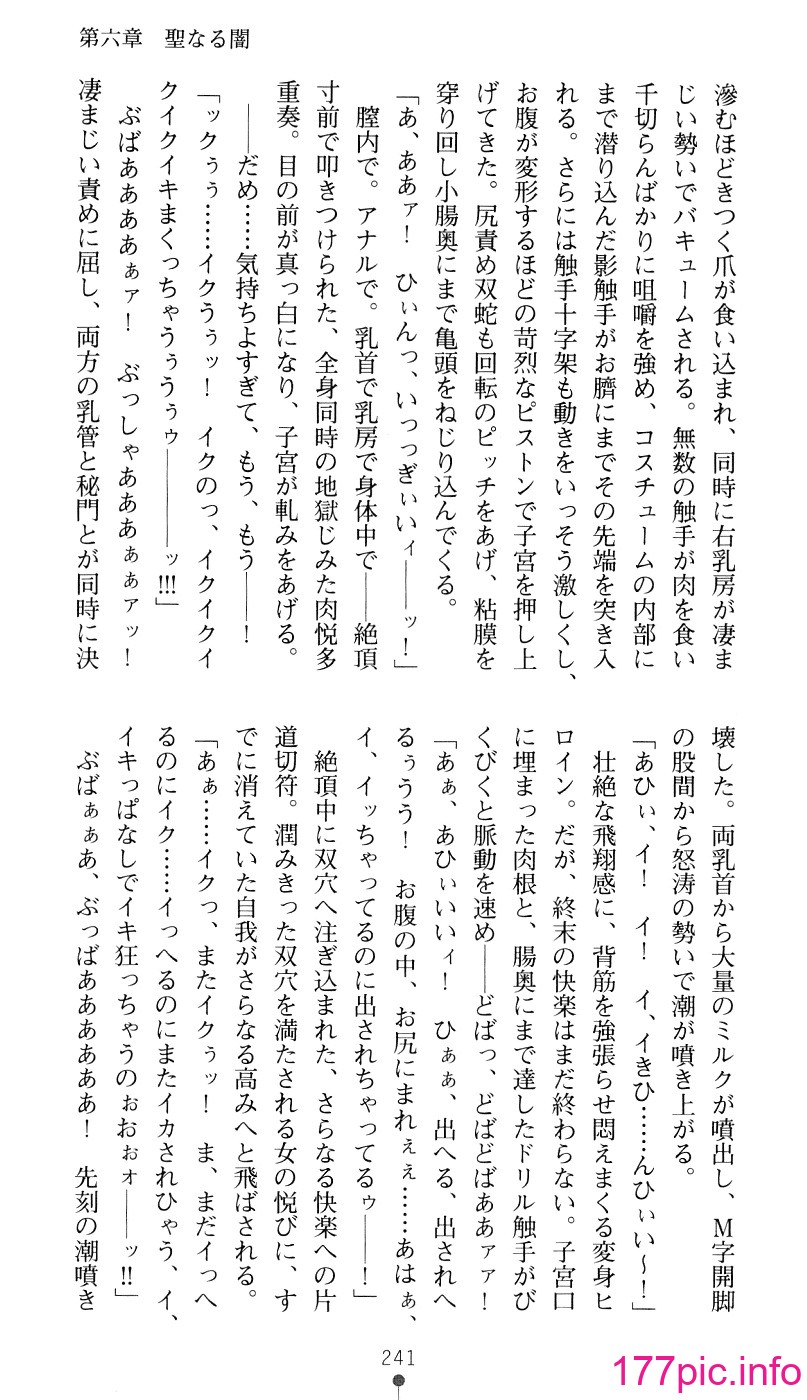 第六章　聖なる闇
滲むほどきつく爪が食い込まれ、同時に右乳房が凄ま
じい勢いでバキュームされる。無数の触手が肉を食い
千切らんばかりに咀嚼を強め、コスチュームの内部に
まで潜り込んだ影触手がお臍にまでその先端を突き入
れる。さらには触手十字架も動きをいっそう激しくし、
お腹が変形するほどの苛烈なピストンで子宮を押し上
げてきた。尻責め双蛇も回転のピッチをあげ、粘膜を
穿り回し小腸奥にまで亀頭をねじり込んでくる。
「あ、ああァ！　ひぃんっ、いっっぎぃいィ――ッ！」
　膣内で。アナルで。乳首で乳房で身体中で――絶頂
寸前で叩きつけられた、全身同時の地獄じみた肉悦多
重奏。目の前が真っ白になり、子宮が軋みをあげる。
　――だめ……気持ちよすぎて、もう、もう――！
「ックぅぅ……イクうぅッ！　イクのっ、イクイクイ
クイクイキまくっちゃうぅうぅゥ――――ッ!!!」
　ぶばああああぁァ！　ぶっしゃあああぁぁァッ！
凄まじい責めに屈し、両方の乳管と秘門とが同時に決
壊した。両乳首から大量のミルクが噴出し、Ｍ字開脚
の股間から怒涛の勢いで潮が噴き上がる。
「あひぃ、イ！　イ！　イ、イきひ……んひぃい～！」
　壮絶な飛翔感に、背筋を強張らせ悶えまくる変身ヒ
ロイン。だが、終末の快楽はまだ終わらない。子宮口
に埋まった肉根と、腸奥にまで達したドリル触手がび
くびくと脈動を速め――どばっ、どばどばああァァ！
「あぁ、あひぃいいィ！　ひぁぁ、出へる、出されへ
るぅうう！　お腹の中、お尻にまれぇぇ……あはぁ、
イ、イッちゃってるのに出されちゃってるゥ――！」
　絶頂中に双穴へ注ぎ込まれた、さらなる快楽への片
道切符。潤みきった双穴を満たされる女の悦びに、す
でに消えていた自我がさらなる高みへと飛ばされる。
「あぁ……イクっ、またイクぅッ！　ま、まだイっへ
るのにイク……イっへるのにまたイカされひゃう、イ、
イキっぱなしでイキ狂っちゃうのぉおぉォ――ッ!!」
　ぶばぁぁあ、ぶっばああああああ！　先刻の潮噴き
241
177pic.info